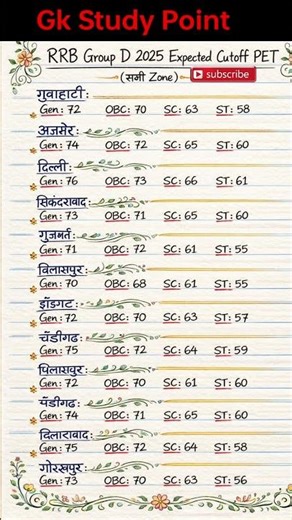 Gk Study Point
RRB Group D 2025 Expected Cutoff PET
(सभी Zone) subscribe
गुवाहाटी:
Gen: 72 OBC: 70 SC: 63 ST: 58
अजमेर:
Gen: 74 OBC: 72 SC: 65 ST: 60
दिल्ली:
Gen: 76 OBC: 73 SC: 66 ST: 61
सिकंदराबाद:
Gen: 73 OBC: 71 SC: 65 ST: 60
Gen: 71 OBC: 72 SC: 61 ST: 55
बिलासपुर:
Gen: 70 OBC: 68 SC: 61 ST: 55
Gen: 72 OBC: 70 SC: 63 ST: 57
चँडीगढ:
Gen: 75 OBC: 72 SC: 64 ST: 59
पिलासपुर:
Gen: 72 OBC: 70 SC: 61 ST: 60
पँडीगढ:
Gen: 74 OBC: 71 SC: 65 ST: 60
दिलाराबाद:
Gen: 75 OBC: 72 SC: 64 ST: 58
गोरखपुर:
Gen: 73 OBC: 70 SC: 63 ST: 56